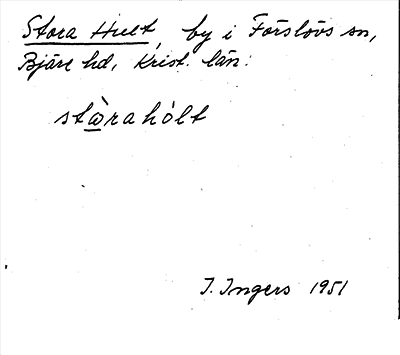 Stora Hult, by i Förslövs sn,
Bjäre hd, Krist. län.
stὼ̲rahòlt
I. Ingers 1951